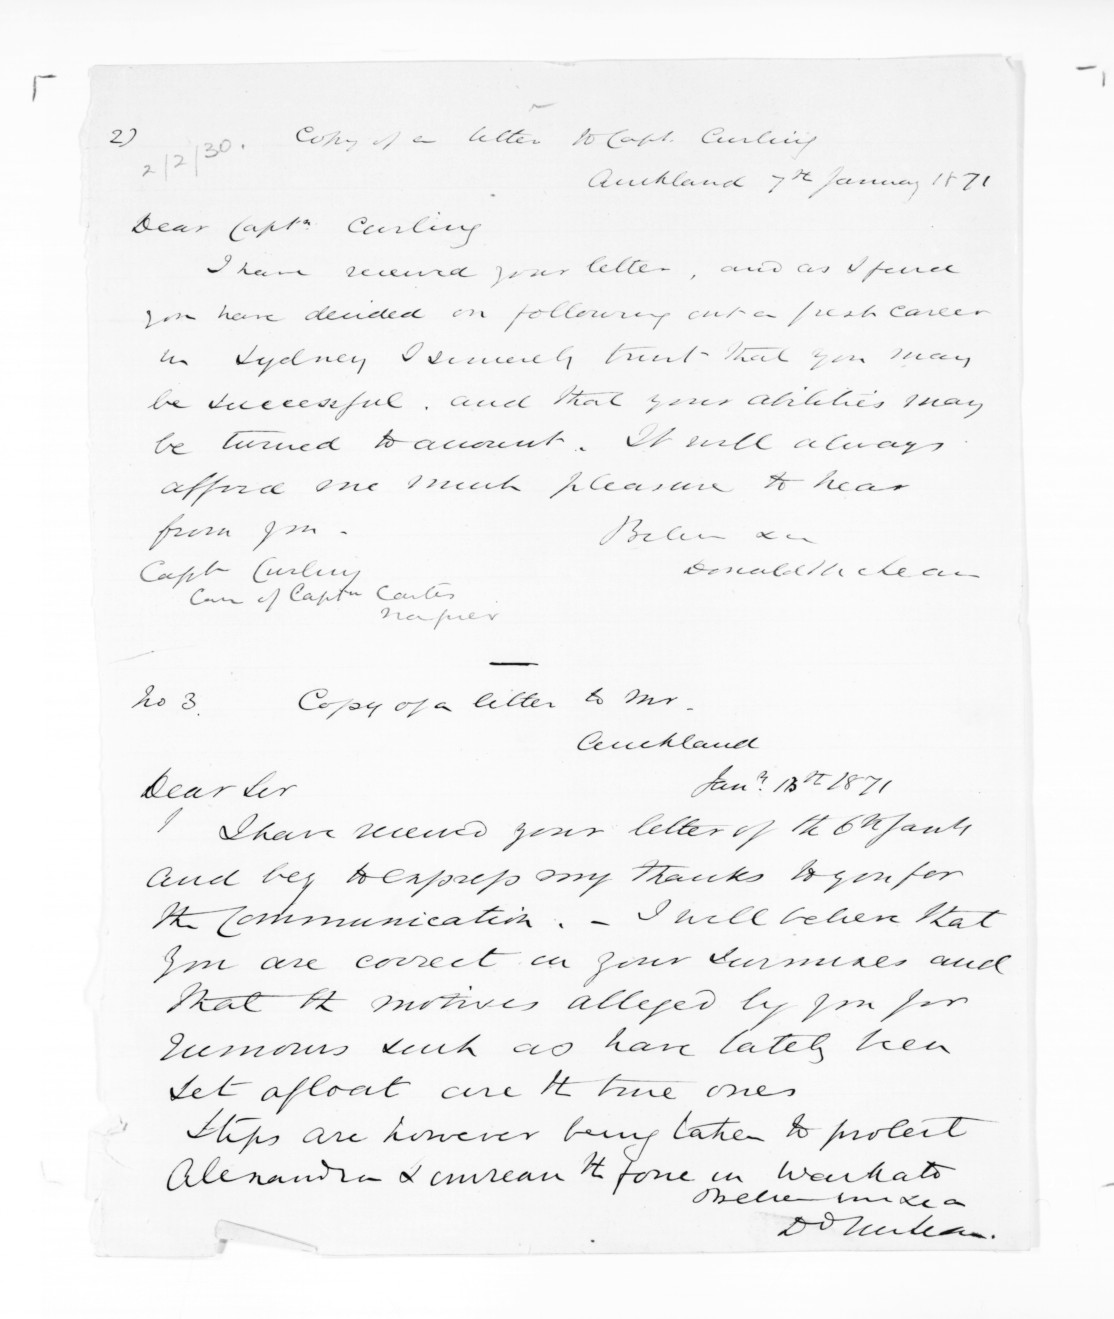 2)
2/2/30.
Copy of a letter to Capt. Curling
Auckland 7th January 1871
Dear Captn Curling
I have received your letter, and as I find
you have decided on following out a fresh career
in Sydney I sincerely trust that you may
be successful. and that your abilities may
be turned to account. It will always
afford me much pleasure to hear
from you.
Believe &c
Donald McLean
Captn Curling
Care of Captn Carter
Napier
No 3. Copy of a letter to Mr.
Auckland
Jany. 13th 1871
Dear Sir
I have received your letter of the 6th
and beg to express my thanks to you for
the Communication. - I will believe that
you are correct in your surmises and
that the motives alleged by you for
rumours such as have lately been
set afloat are the true ones
Steps are however being taken to protect
Alexandra & increase the force in Waikato
Believe me &c
Dd McLean.